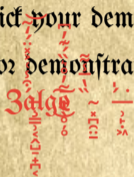 ick your dem
or demonstra
Zalgo